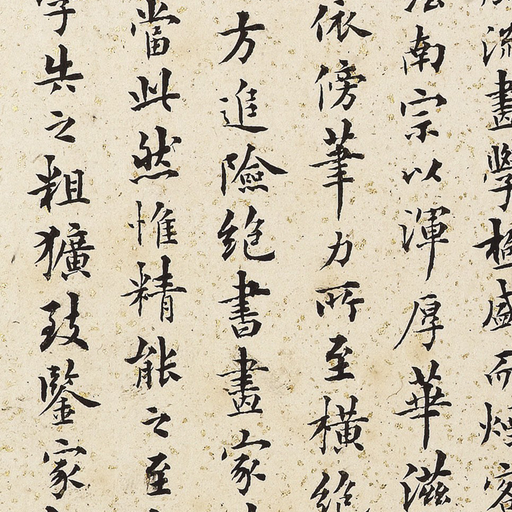 流畫學極盛而煙客
法南宗以渾厚華滋
依傍筆力所至橫絕
方進險絕書畫家
當此然惟精能之至
學失之粗獷致鑒家